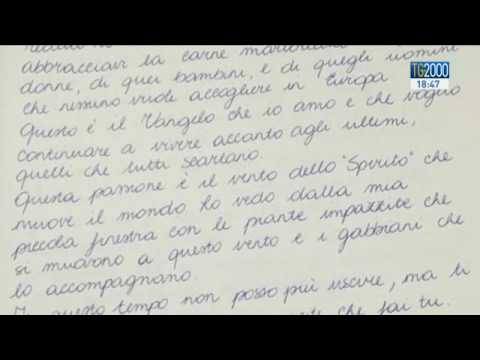 abbracciavi la carne martoriata
donne, di quei bambini, e di quegli uomini
che nessuno vuole accogliere in Europa
Questo è il Vangelo che io amo e che voglio
continuare a vivere accanto agli ultimi,
quelli che tutti scartano.
Questa passione è il vento dello "Spirito" che
muove il mondo lo vedo dalla mia
piccola finestra con le piante impazzite che
si muovono a questo vento e i gabbiani che
lo accompagnano.
questo tempo non posso più uscire, ma ti
che fai tu.
TG2000
18:47